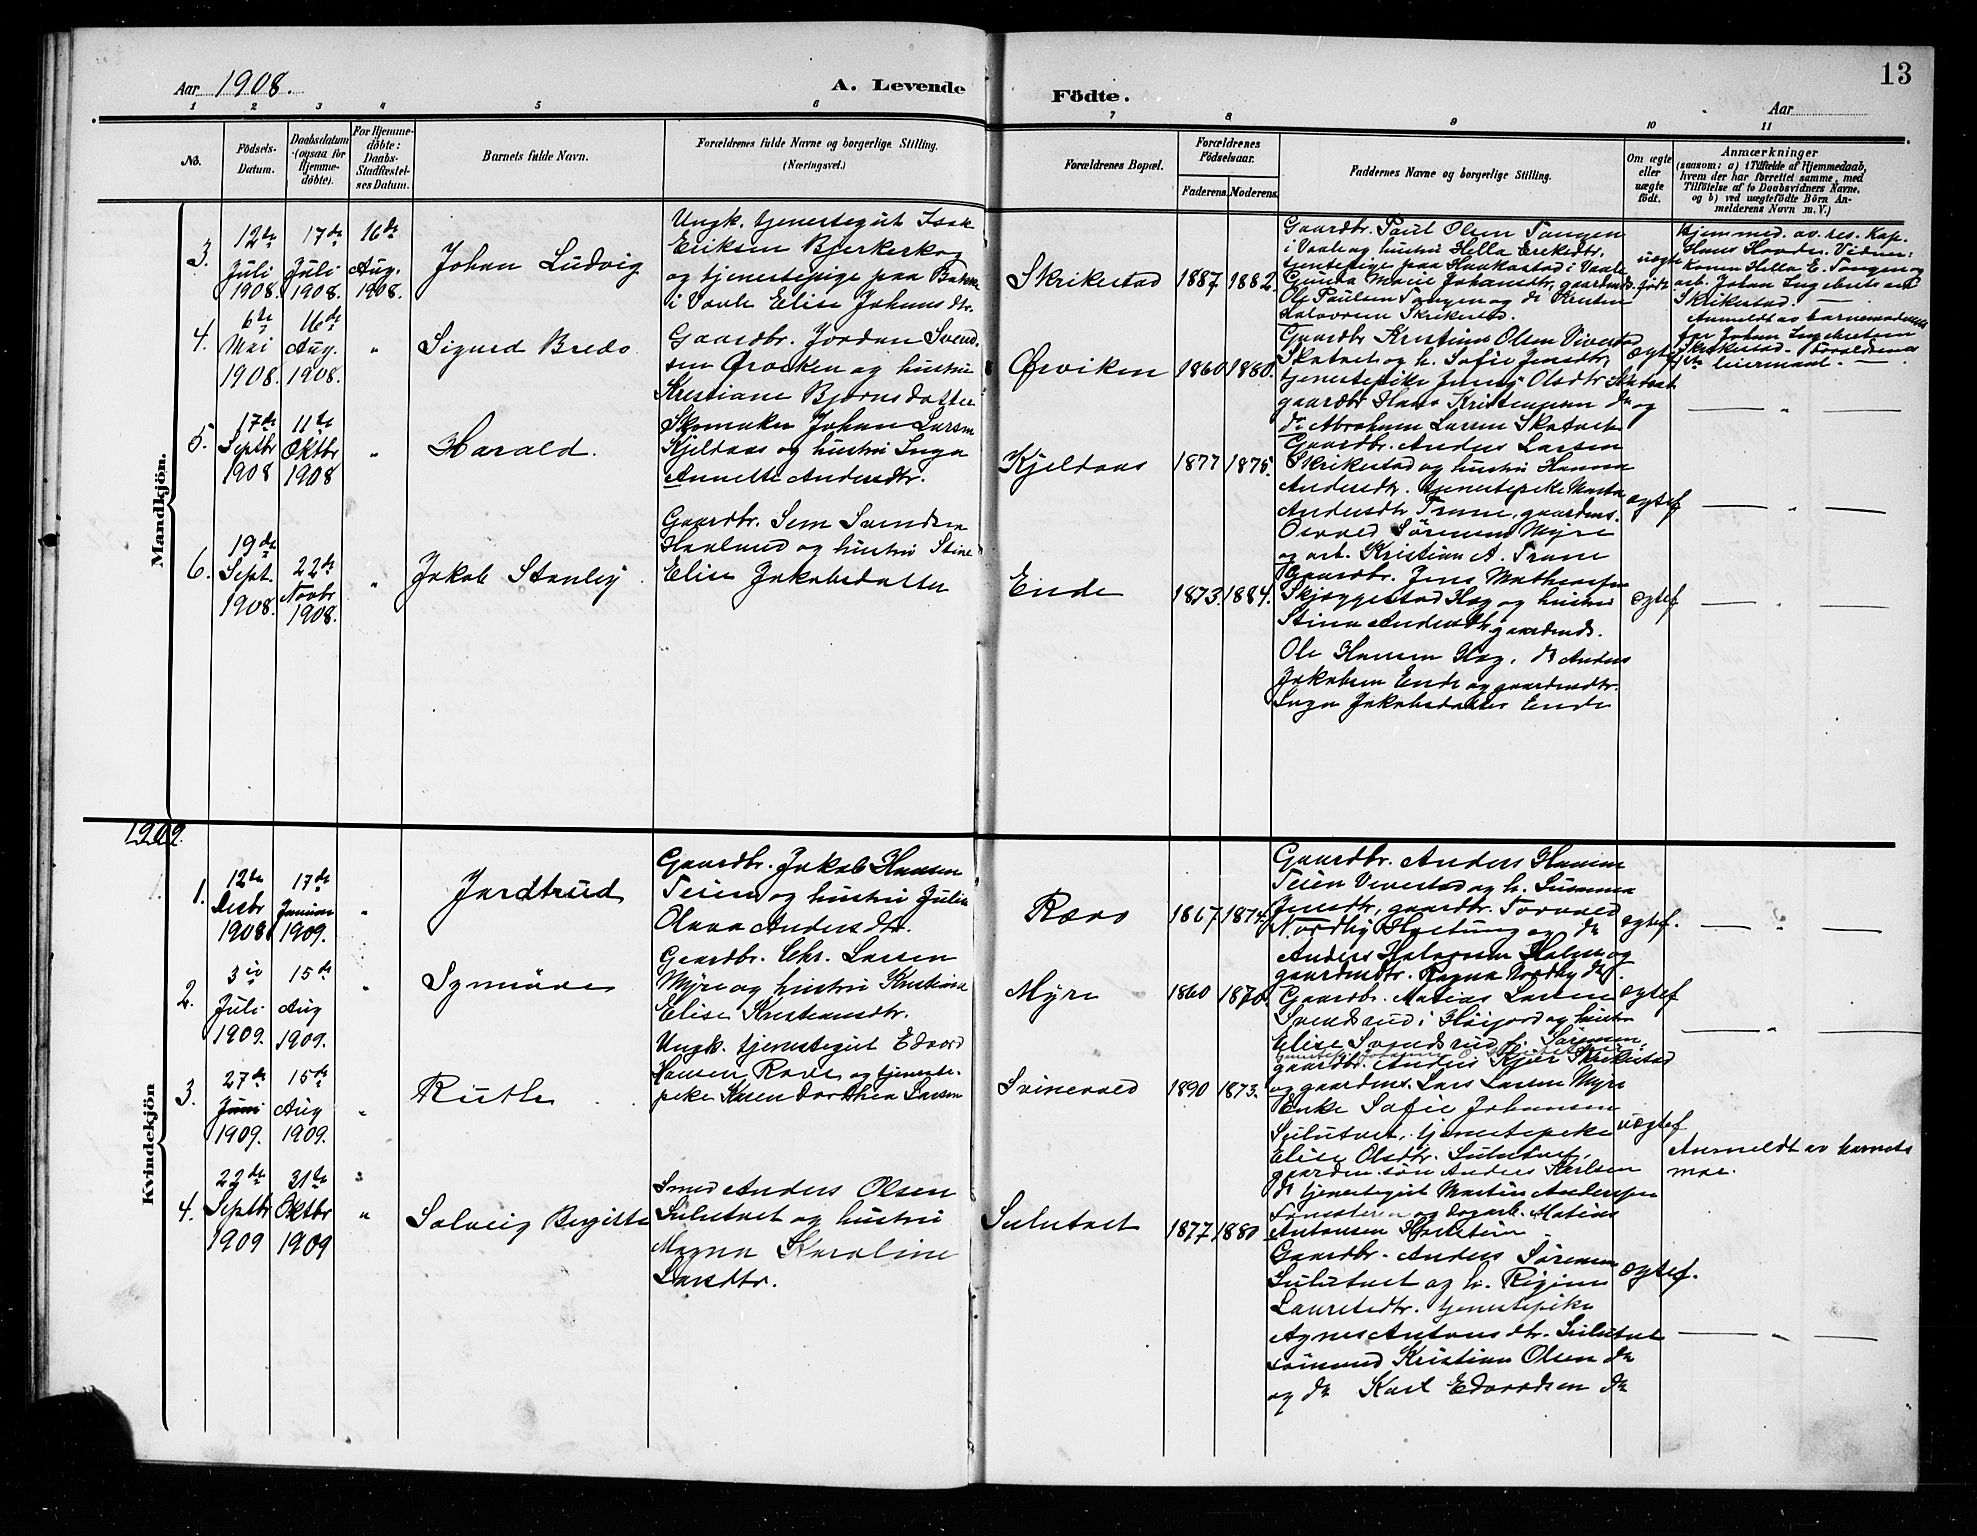 Aar 1908.
A. Levende
Födte.
13
Aar
1
2
3
4
5
6
7
8
9
10
11
No.
Födsels-
Datum.
Daabsdatum
(ogsaa for
Hjemme-
döbte).
For Hjemme-
döbte:
Daabs-
Stadfæstel-
ses Datum.
Barnets fulde Navn.
Forældrenes fulde Navne og borgerlige Stilling.
(Næringsvei.)
Forældrenes Bopæl.
Forældrenes
Födselsaar.
Faderens.
Moderens.
Faddernes Navne og borgerlige Stilling.
Om ægte
eller
uægte
födt.
Anmærkninger
(saasom: a) i Tilfælde af Hjemmedaab,
hvem der har forrettet samme, med
Tilföielse af to Daabsvidners Navne,
og b) ved uægtefödte Börn An-
melderens Navn m. V.)
Mandkjön.
3.
12te
Juli
1908.
17de
Juli
1908.
16de
Aug.
1908.
Johan Ludvig
Ungk. tjenestegut Isak
Eriksen Bjerkeskog
og tjenestepige paa
i Vaale Elise Johansdtr.
Skrikestad
1887
1882.
Gaardbr. Paul Olsen Tangen
i Vaale og hustru Hella Eriksdtr.
tjenestepige paa Haakastad i Vaale
Gunda Marie Johansdtr, gaardmds.
Ole Paulsen Tangen og do Kristen
Halvorsen Skrikestad.
uægte
födt.
Hjemmed. av. res. Kap.
Hans Hovde. Vidner:
Konen Hella E. Tangen og
arb. Johan Ingebretsen
Skrikestad. —
Anmeldt av barnemoderens
far Johan Ingebretsen
Skrikestad. Foreldrenes
1ste leiermaal. —
4.
6te
Mai
1908.
16de
Aug.
1908.
"
Sigurd Bredo
Gaardbr. Jordan Svend-
sen Ørviken og hustru
Kristiane Bjørnsdatter
Ørviken
1860
1880.
Gaardbr Kristinus Olsen Vivestad
Skatvet og h. Sofie Jensdtr,
tjenestepike Jenny Olsdtr Skatvet
gaardbr Hans Kristensen do og
do Abraham Larsen Skatvet
ægtef
— " —
5.
17de
Septbr
1908
11te
Oktbr
1908
"
Harald.
Skomaker Johan Larsen
Kjeldaas og hustru Inga
Annette Andersdtr.
Kjeldaas
1877
1875.
Gaardbr. Anders Larsen
Skrikestad og hustru Hanna
Andersdtr. tjenestepike Marta
Andersdtr Trane, gaardmds.
Osvald Sørensen Myre
og arb. Kristian A. Trane
ægtef
— " —
6.
19de
Sept.
1908.
22de
Novbr
1908.
"
Jakob Stanley
Gaardbr. Sem Svendsen
Haaland og hustru Stine
Elise Jakobsdatter
Ende
1873.
1884.
Gaardbr. Jens Mathiassen
Skjæggestad Hag og hustru
Stina Andersdtr, gaardmds.
Ole Hansen Hag, do Anders
Jakobsen Ende og gaardmdtr.
Inga Jakobsdatter Ende
ægtef
— " —
1909.
Kvindekjön
1.
12te
Desbr
1908
17de
Januar
1909.
"
Jardtrud
Gaardbr. Jakob Hansen
Teien og hustru Julie
Olava Andersdtr.
Rævo
1867
1874.
Gaardbr. Anders Hansen
Teien Vivestad og h. Susanna
Jensdtr, gaardbr. Torvald
Nordby Hæetung og do
Anders Halvorsen Holm og
gaardmdtr. Ragna Nordby do.
ægtef.
— " —
2.
3die
Juli
1909.
15de
Aug
1909.
"
Synnöve
Gaardbr. Chr. Larsen
Myre og hustru Kristiane
Elise Kristiansdtr.
Myre
1860
1870.
Gaardbr. Matias Larsen
Svendsrud i Høijord og hustru
Elise Svendsrud f. Sørensen,
gaardbr. Anders Kjær Skrikestad
og gaardmds. Lars Larsen Myre
ægtef
— " —
3.
27de
Juni
1909.
15de
Aug
1909.
"
Ruth
Ungk. tjenestegut Edvard
Hansen Rave og tjeneste-
pike Karen Dorthea Larsen
Svinevold
1890
1873.
Enke Sofie Johansen
Sulutvet, tjenestepike
Elise Olsdtr. Sulutvet,
gaardm.søn Anders Karlsen
do tjenestegut Martin Anderssen
og dagarb. Matias
Antonsen
uægtef
Anmeldt av barnets
mor.
4.
22de
Septbr
1909
31te
Oktbr
1909
"
Solveig Bergitte
Smed Anders Olsen
Sulutvet og hustru
Magna Karoline
Larsdtr.
Sulutvet
1877
1880
Gaardbr. Anders Sörensen
Sulutvet og h. Regine
Lauritsdtr. tjenestepike
Agnes Antonsdtr. Sulutvet
sømand Kristian Olsen do
og do Karl Edvardsen do
ægtef.
— " —